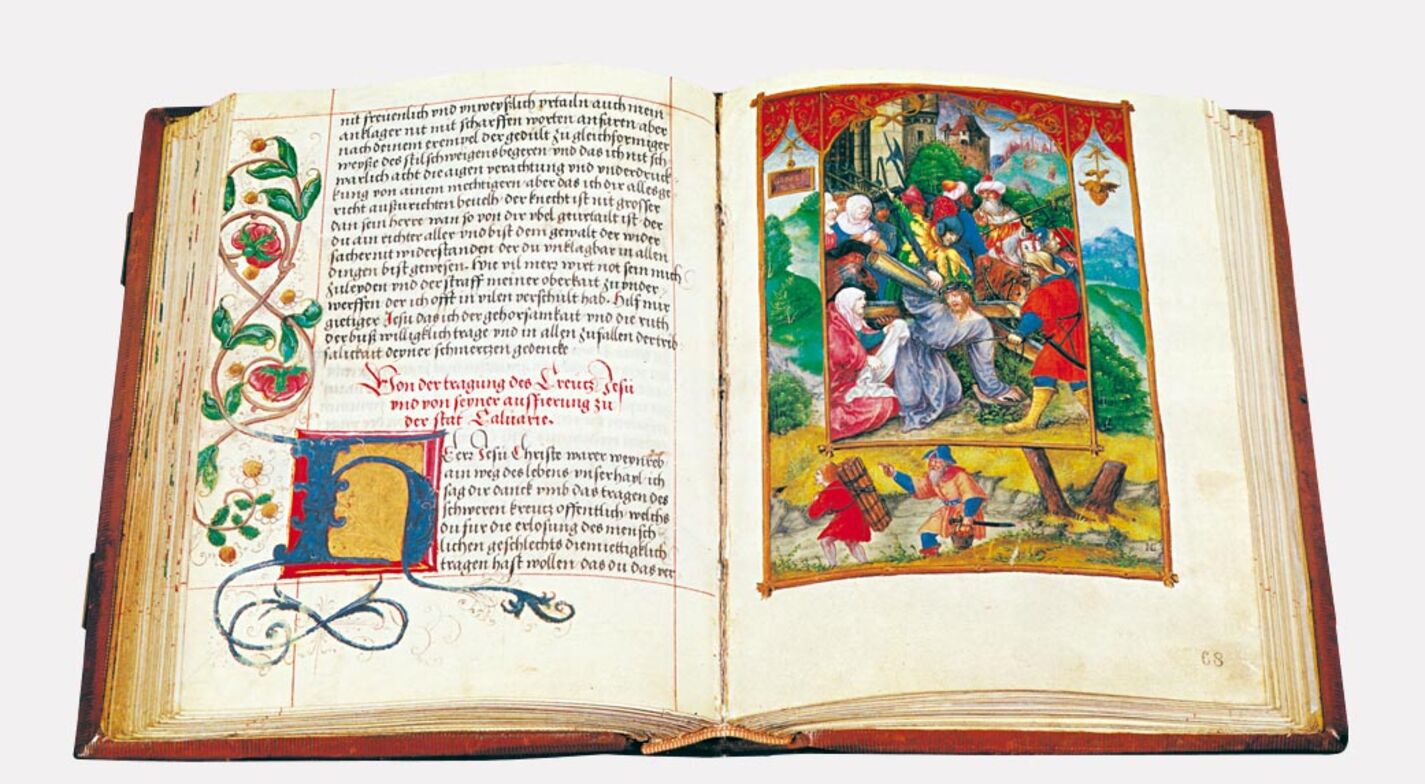 nit freuenlich vnd vnweyßlich vrtailn auch mein
anklager nit mit scharffen worten anfaren aber
nach deinem exempel der gedult zu gleichformiger
weyße des stilschweigens begeren vnd das ich nit sch
warlich acht die aigen verachtung vnd vnderdruck
kung von ainem mechtigern aber das ich dir alles ge
richt außzurichten beuelh der knecht ist nit grosser
dan sein herre wan so von dir vbel geurtailt ist der
du ain richter aller vnd bist dem gewalt der wider
sacher nit widerstanden der du vnklagbar in allen
dingen bist gewesen wie vil merz wirt not sein mich
zuleyden vnd der straff meiner oberkait zu vnder
werffen der ich offt in vilen verschult hab. Hilf mir
guetiger Jesu das ich der gehorsamkait vnd die ruth
der buß willigklich trage vnd in allen zufallen der trib
salickait deyner schmertzen gedencke
Von der tragung des Creutz Jesu
vnd von seyner aussfierung zu
der stat Caluarie.
Herr Jesu Christe warer weinreb
ain weg des lebens vnser hayl ich
sag dir danck vmb das tragen des
schweren kreutz offentlich welchs
du fur die erlosung des mensch
lichen geschlechts diemiettigklich
tragen hast wollen das du das ver
68